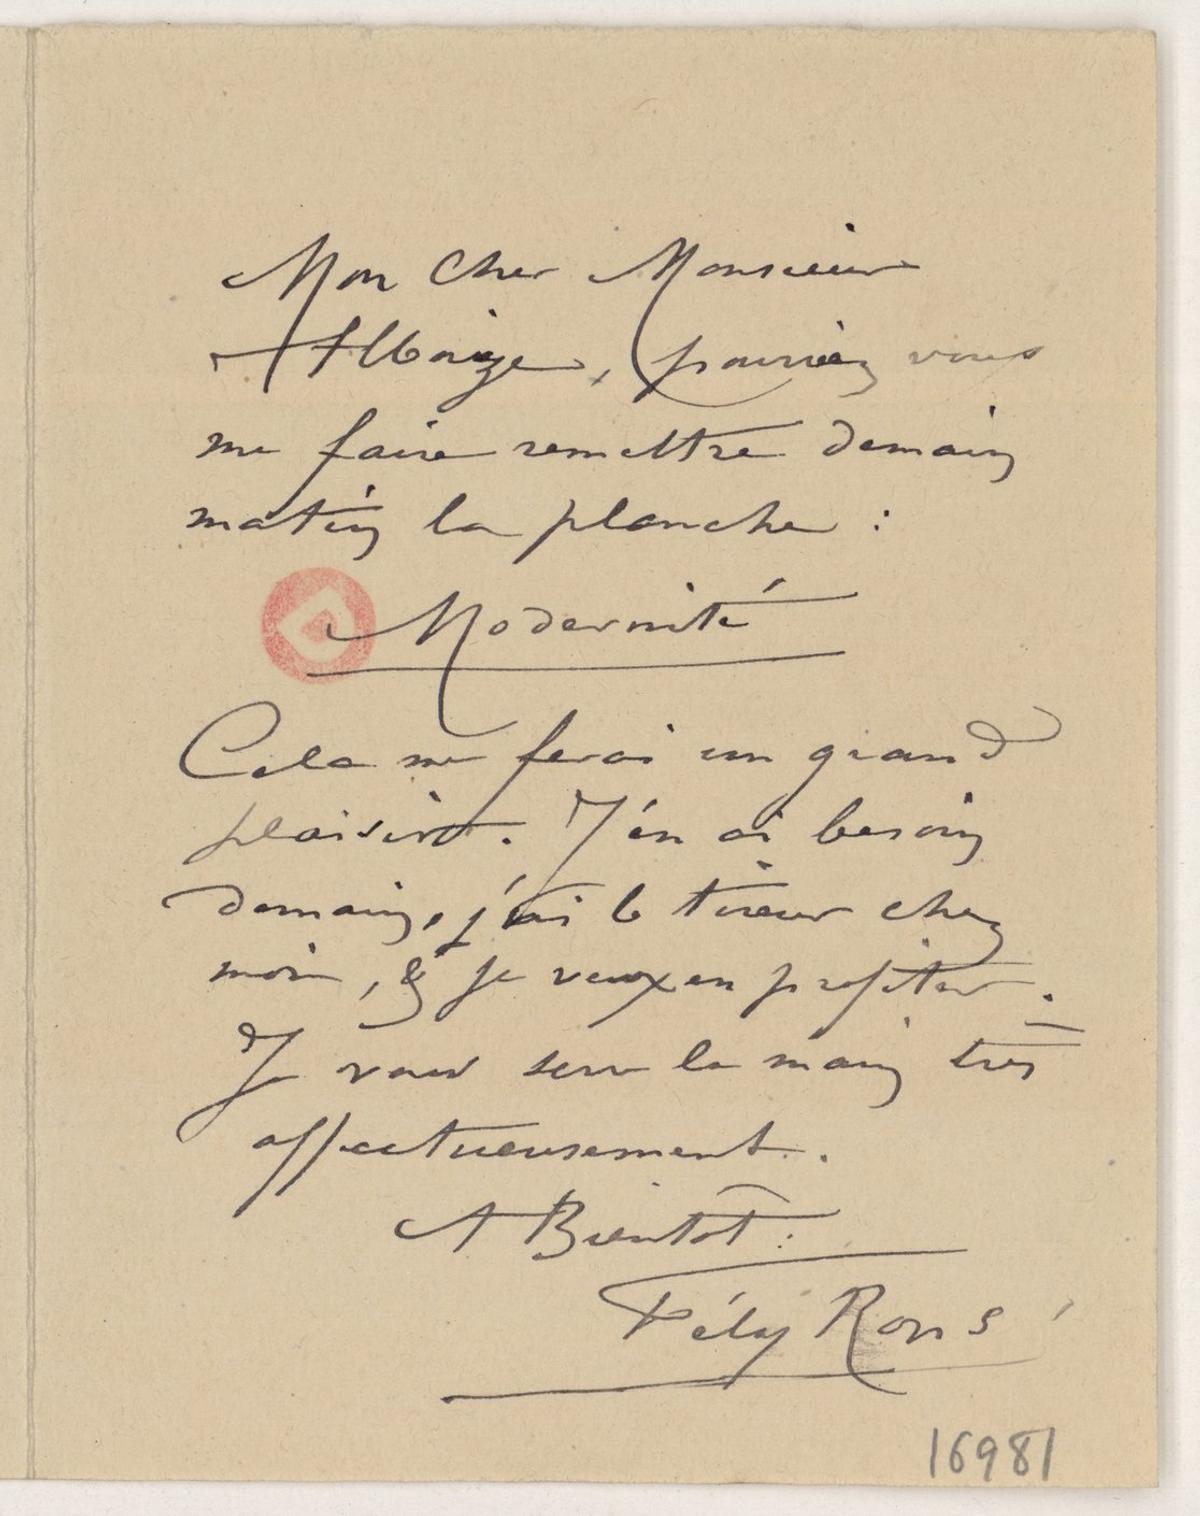 Mon Cher Monsieur
Alboize, pourriez vous
me faire remettre demain
matin la planche :
Modernité
Cela me ferai un grand
plaisir. J'en ai besoin
demain, j'ai le tireur chez
moi, & je veux en profiter.
Je vous serre la main très
affectueusement.
A Bientôt :
Fély Rops
16981